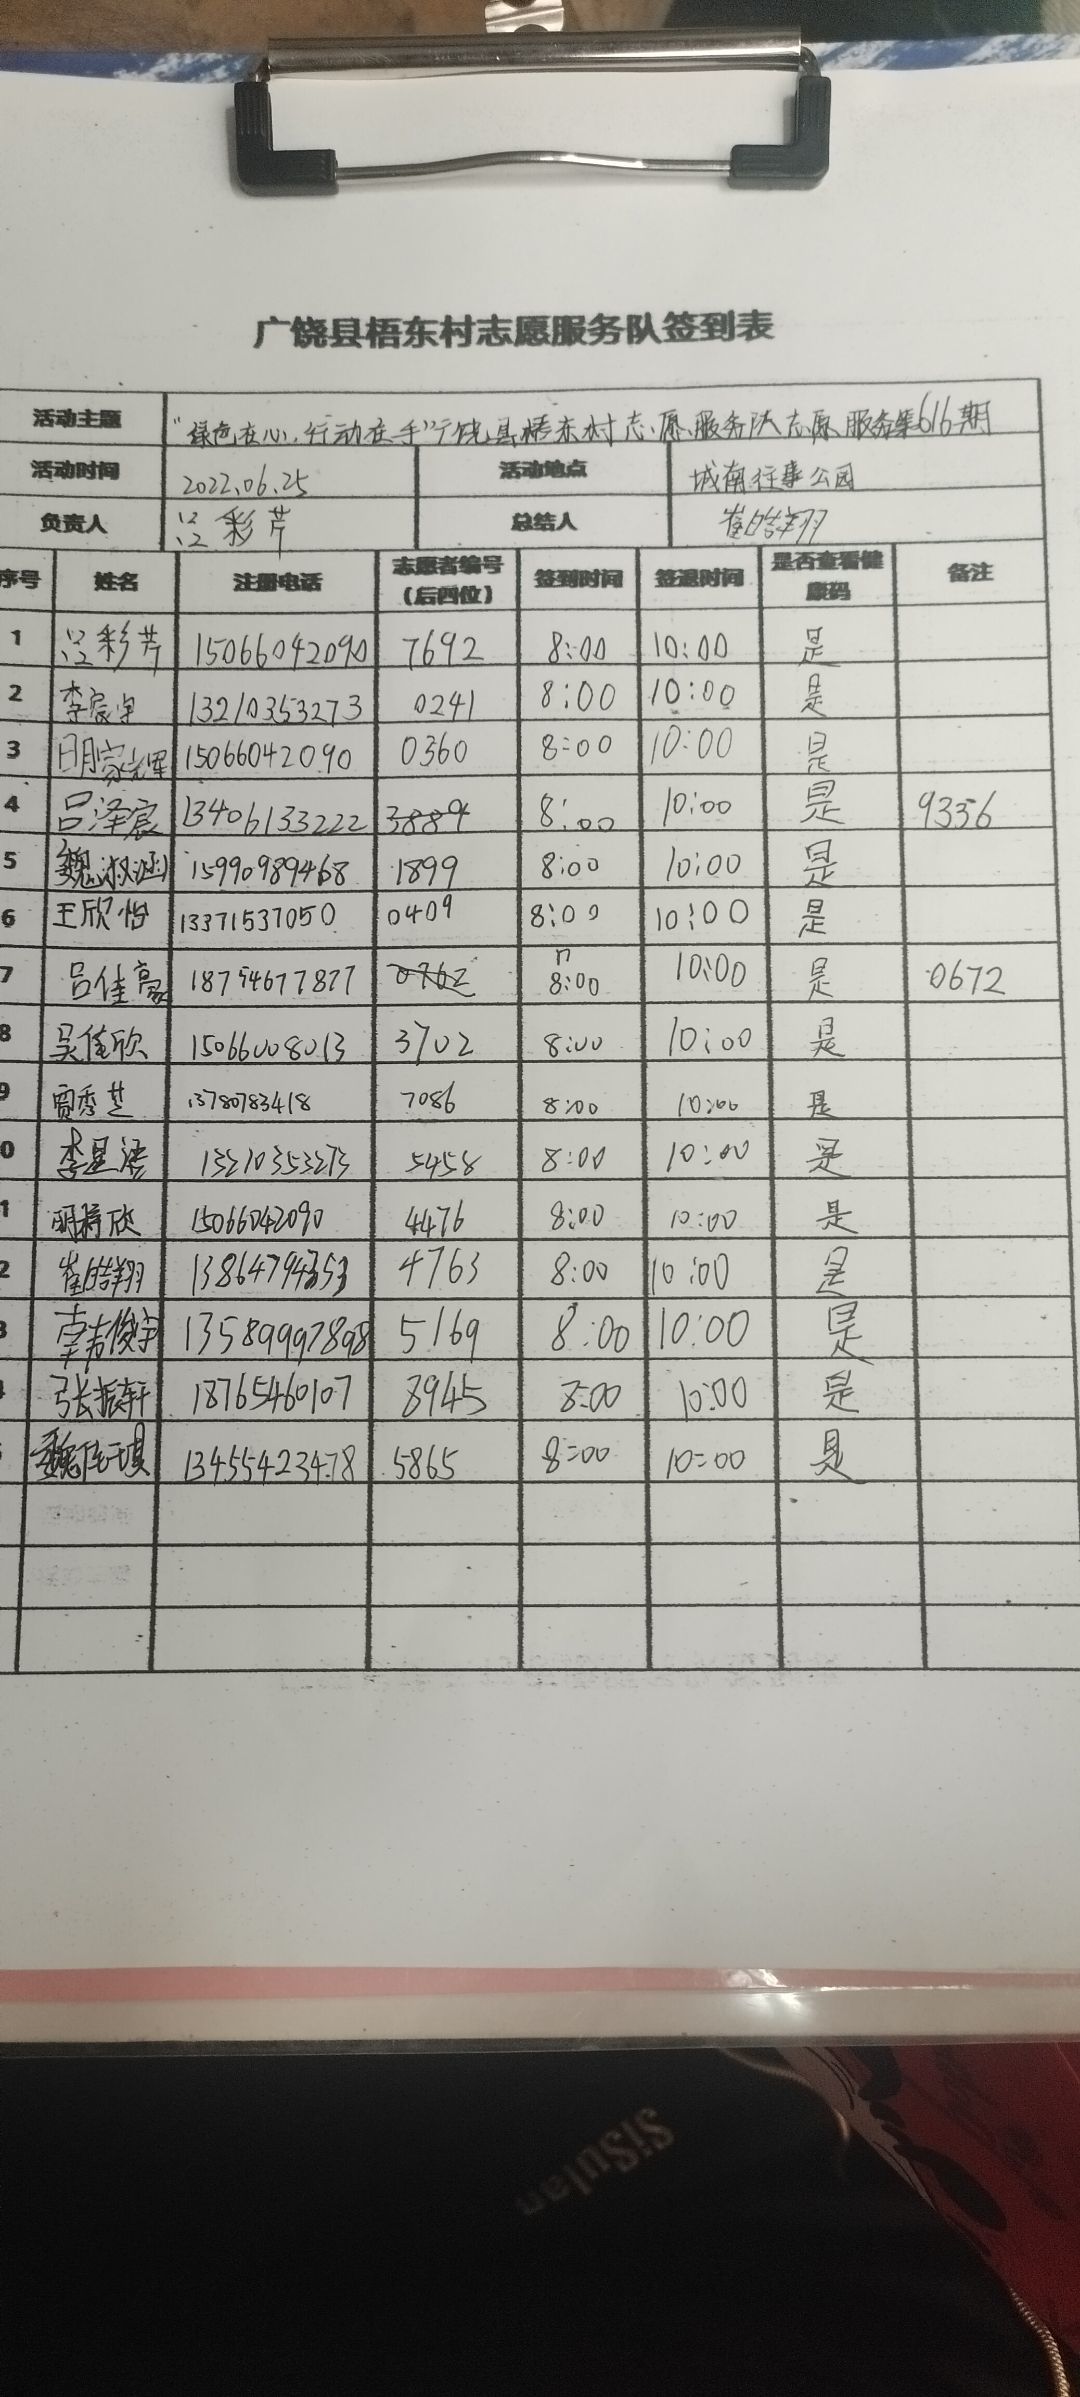 广饶县梧东村志愿服务队签到表
活动主题 “绿色在心,行动在手”广饶县梧东村志愿服务队志愿服务第616期
活动时间 2022.06.25 活动地点 城南往事公园
负责人 彩芹 总结人 崔皓翔
序号 姓名 注册电话 志愿者编号(后四位) 签到时间 签退时间 是否查看健康码 备注
1 彩芹 15066042090 7692 8:00 10:00 是
2 李宸宇 13210353273 0241 8:00 10:00 是
3 明家辉 15066042090 0360 8:00 10:00 是
4 吕泽宸 13406133222 8:00 10:00 是 9336
5 魏淑涵 15990989468 1899 8:00 10:00 是
6 王欣怡 13371537050 0409 8:00 10:00 是
7 吕佳豪 18754677877 8:00 10:00 是 0672
8 吴佳欣 15066008013 3702 8:00 10:00 是
9 贾秀芝 13780783418 7086 8:00 10:00 是
0 李星浩 13210353273 5458 8:00 10:00 是
1 明梓欣 15066042090 4476 8:00 10:00 是
2 崔皓翔 4763 8:00 10:00 是
3 韩俊宇 13589997898 5169 8:00 10:00 是
张振轩 18765460107 8945 8:00 10:00 是
魏 13455423478 5865 8:00 10:00 是
SiSulan